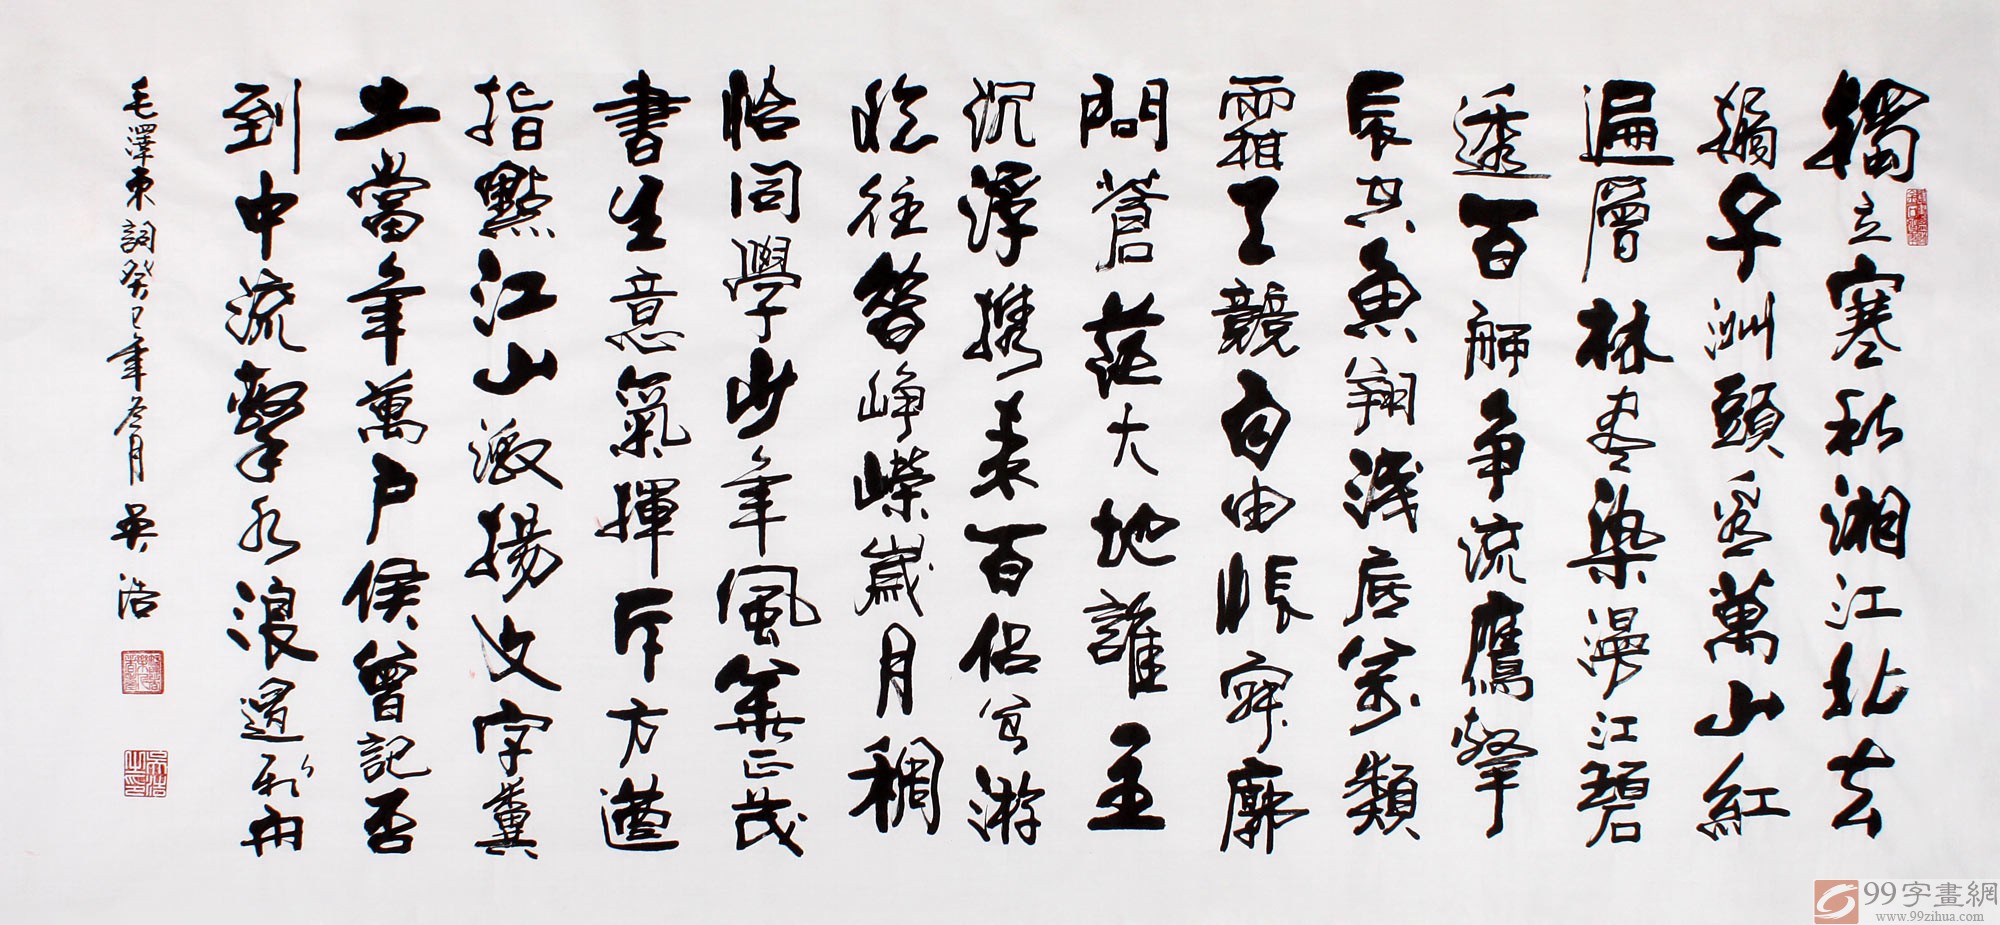 獨立寒秋湘江北去
橘子洲頭看萬山紅
遍層林盡染漫江碧
透百舸争流鷹擊
長空魚翔淺底萬類
霜天競自由悵寥廓
問蒼茫大地誰主
沉浮携來百侣曾游
憶往昔崢嶸歲月稠
恰同學少年風華正茂
書生意氣揮斥方遒
指點江山激揚文字糞
土當年萬户侯曾記否
到中流擊水浪遏飛舟
毛澤東詞癸巳年冬月 吴浩
99字畫網
www.99zihua.com